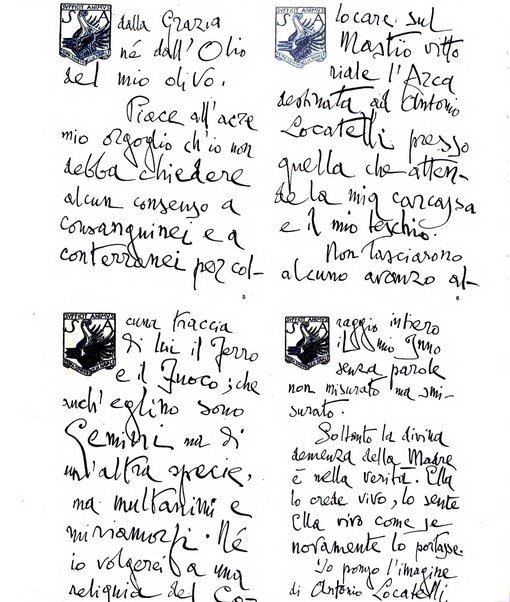 SVFFICIT ANIMVS
dalla Grazia
né dall'Olio
del mio olivo.
Piace all'acre
mio orgoglio ch'io non
debba chiedere
alcun consenso a
consanguinei e a
conterranei per col-
5
SVFFICIT ANIMVS
locare sul
Mastio vitto
riale l'Arca
destinata ad Antonio
Locatelli presso
quella che atten-
de la mia carcassa
e il mio teschio.
Non lasciarono
alcuno avanzo al-
6
SVFFICIT ANIMVS
cuna traccia
di lui il Ferro
e il Fuoco; che
anch'eglino sono
Gemini ma di
un'altra specie,
ma multanimi e
miriamorfi. Né
io volgerei a una
reliquia del Co-
SVFFICIT ANIMVS
raggio intiero
il mio Inno
senza parole
non misurato ma smi-
surato.
Soltanto la divina
demenza della Madre
è nella verità. Ella
lo crede vivo, lo sente
Ella vivo come se
novamente lo portasse.
Io pongo l'imagine
di Antonio Locatelli,